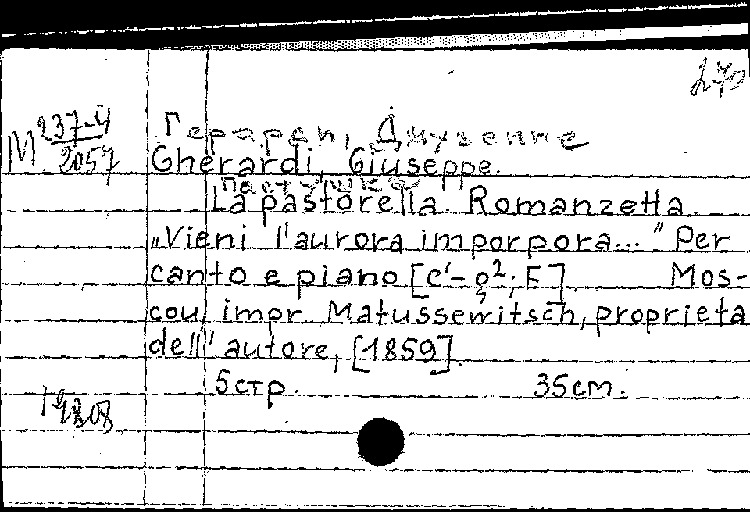 270
М 237-4
2057
Герарди, Джузеппе
Gherardi, Giuseppe.
Пастушка
La pastorella. Romanzetta
„Vieni l'aurora imporpora..." Per
canto e piano [c'-g²; F]. Mos-
cou, impr. Matussewitsch, proprieta
dell' autore, [1859].
5 стр. 35 см.